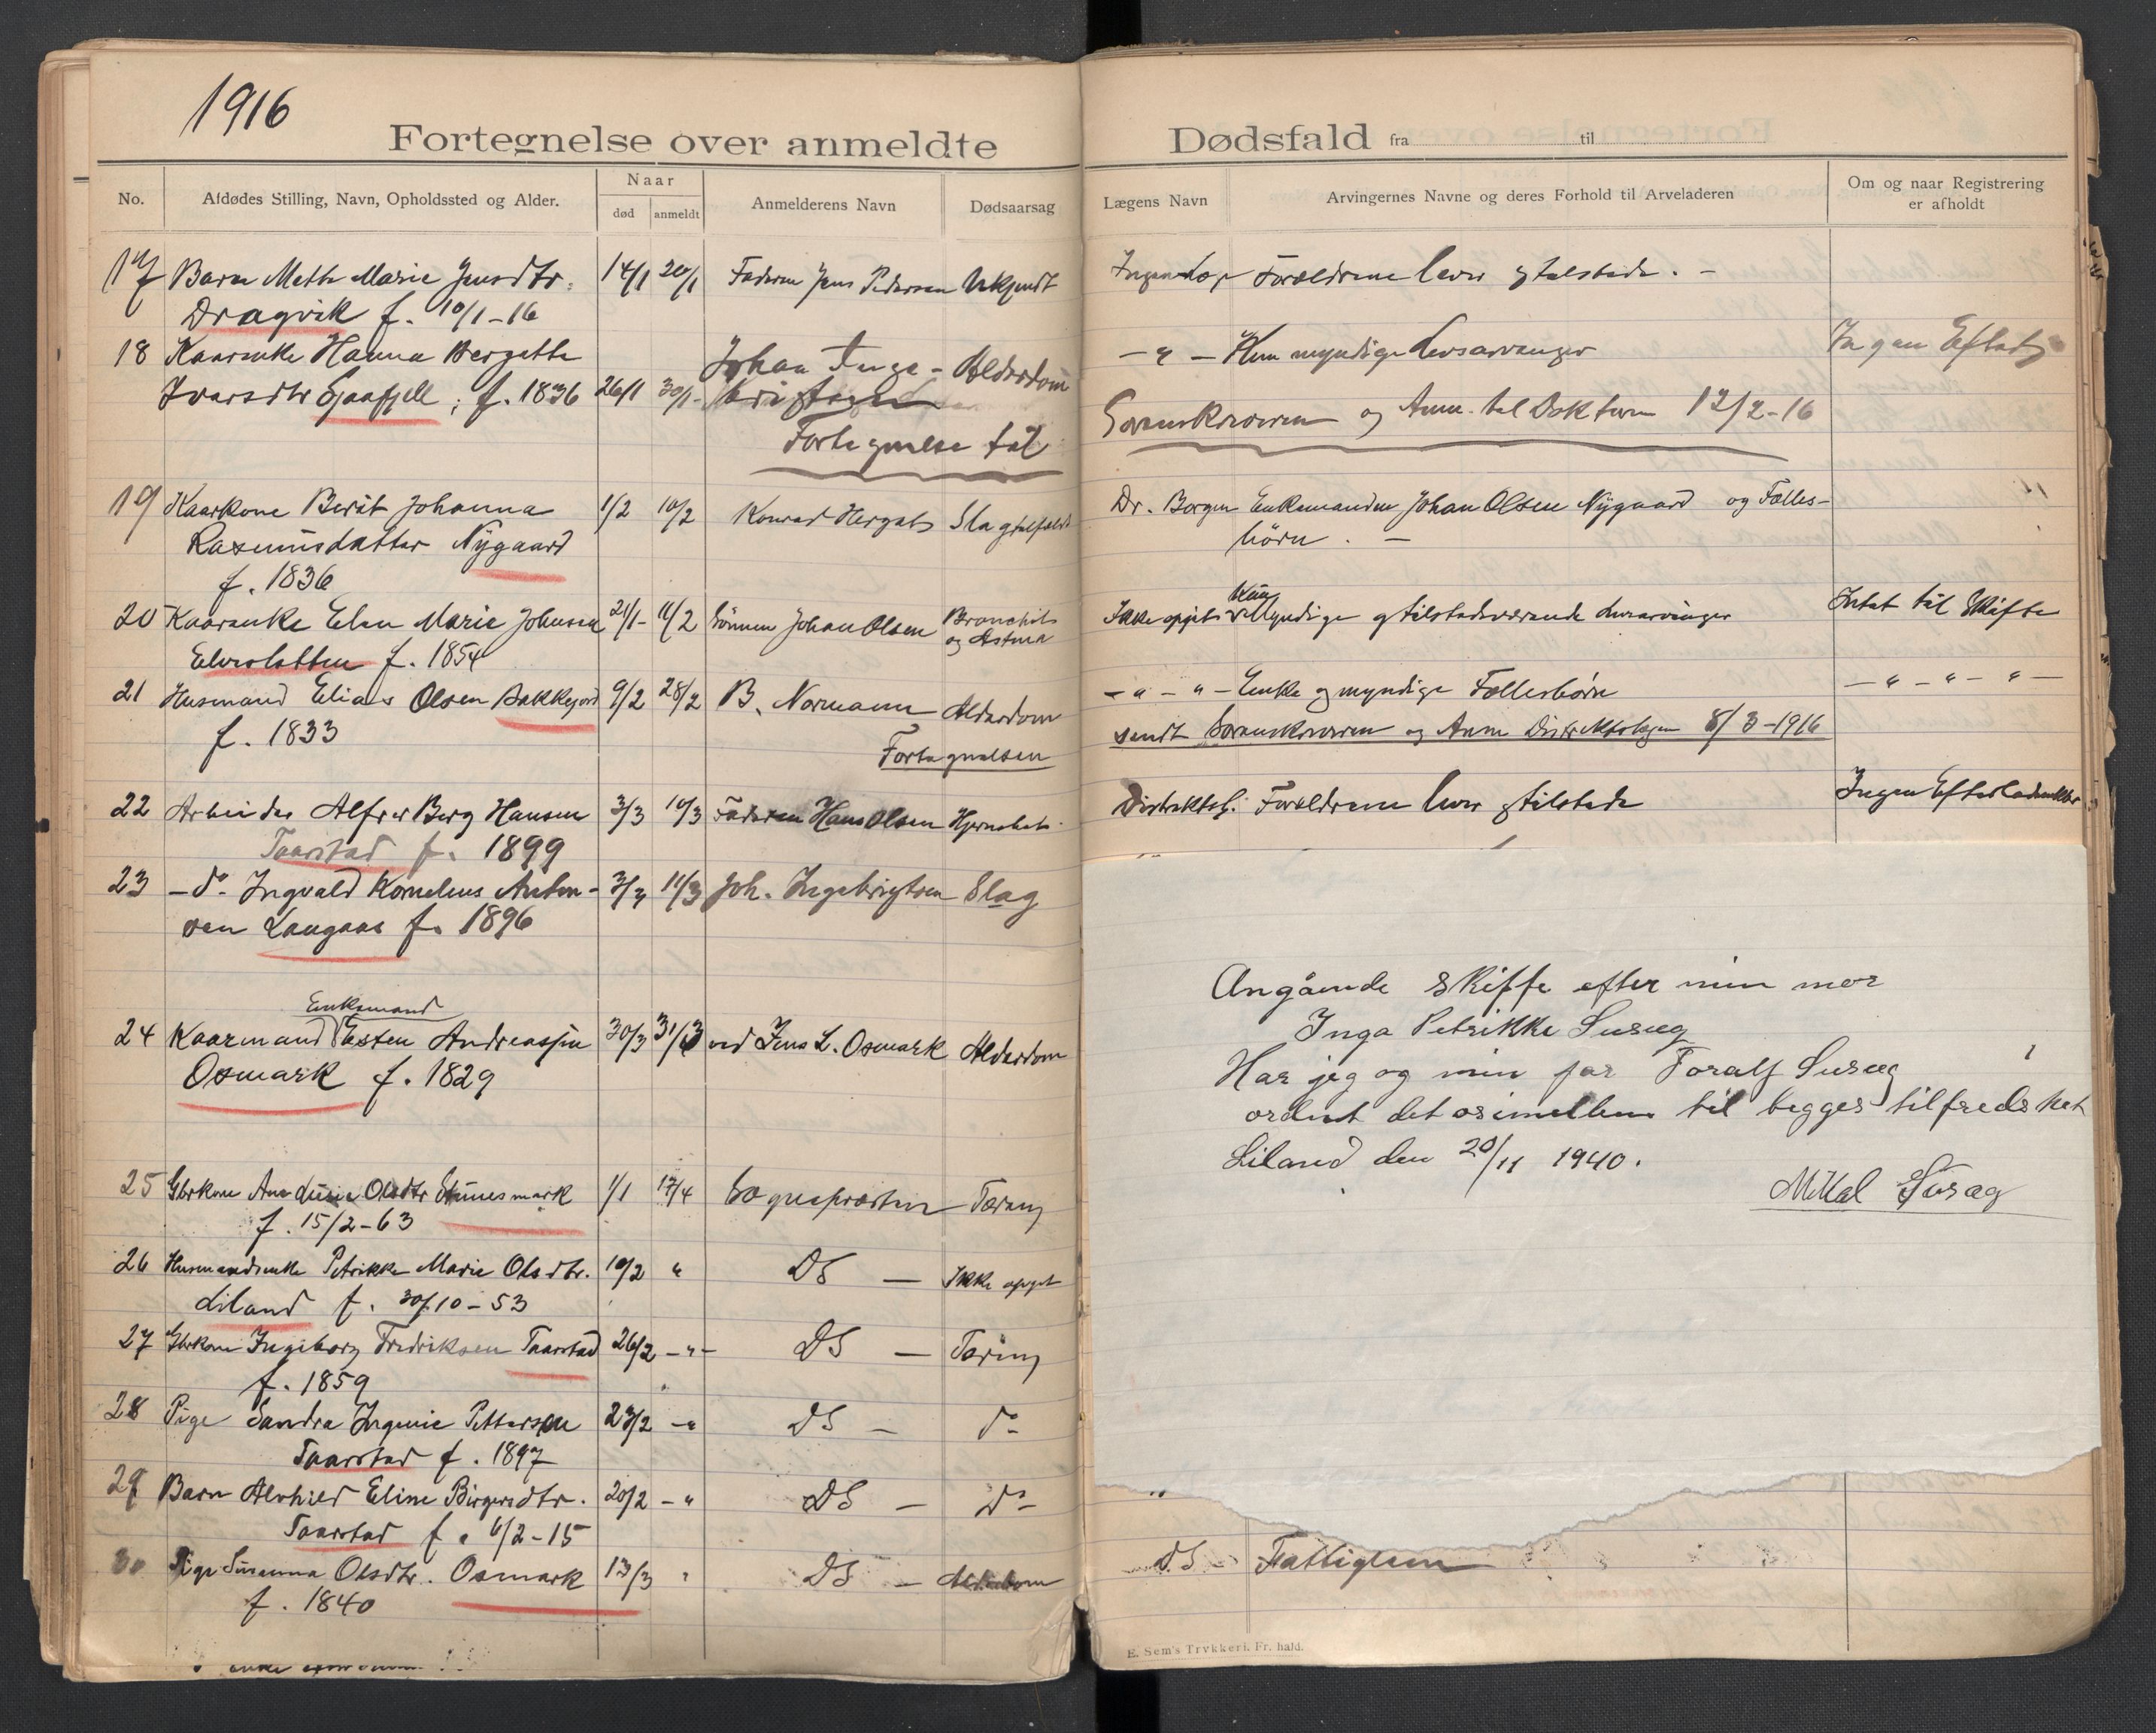 1916
Fortegnelse over anmeldte
No.
Afdødes Stilling, Navn, Opholdssted og Alder.
Naar
død
anmeldt
Anmelderens Navn
Dødsaarsag
17 Barn Meth Marie Jensdtr. 14/1 20/1 Faderen Jens Pedersen Ukjendt
Dragvik f. 10/1-16
18 Kaarenke Hanna Bergette Johan Inge- Alderdom
Ivarsdtr Gaafjell; f. 1836 26/1 30/1
Fortegnelse til
19 Kaarkone Berit Johanna 1/2 10/2 Konrad Hergot Slagtilfælde
Rasmusdatter Nygaard
f. 1836
20 Kaarenke Elen Marie Johnsen 21/1- 11/2 Sönnen Johan Olsen Bronchit
og Astma
Elveslatten f. 1854
21 Husmand Elias Olsen Bakkejord 9/2 28/2 B. Normann Alderdom
f. 1833
Fortegnelsen
22 Arbeider Alfred Berg Hansen 3/3 10/3 Faderen Hans Olsen
Taarstad f. 1899
23 - do- Ingvald Kornelius Anton- 11/3 Joh. Ingebrigtsen Slag
sen Langaas f. 1896
Enkemand
24 Kaarmand Østen Andreassen 30/3 31/3 ved Jens L. Osmark Alderdom
Osmark f. 1829
25 Gbrkone Ane Lusie Olsdtr Stunesmark 1/1 17/4 Sognepræsten Tæring
f. 15/2-63
26 Husmandsenke Petrikke Marie Olsdtr. 10/2 " DS — Ikke opgit
Liland f. 30/10-53
27 Gbrkone Ingeborg Fredriksen Taarstad 26/2 -"- DS — Tæring
f. 1859
28 Pige Sandra Ingenie Pettersen 23/2 -" DS — do-
Taarstad f. 1897
29 Barn Alvhild Eline Birgersdtr. 20/2 -" DS — Do-
Taarstad f. 6/2-15
30 Pige Susanna Olsdtr. Osmark 13/3 " DS — Alderdom
f. 1840
Dødsfald fra til
Lægens Navn
Arvingernes Navne og deres Forhold til Arveladeren
Om og naar Registrering
er afholdt
Ingen Læge Forældrene lever og tilstede. -
- " - Kun myndige Livsarvinger Ingen Efterl
Sorenskriveren og Anm. til Doktoren 12/2-16
Dr. Borgen Enkemanden Johan Olsen Nygaard og Fælles-
börn. -
Kun
Ikke opgit Myndige og tilstedeværende Livsarvinger Intet til Skifte
- " - " - Enke og myndige Fællesbörn - " - " - " -
sendt Sorenskriveren og Anm Distriktslægen 8/3-1916
Distriktsl. Forældrene lever og tilstede Ingen Efterladenskber
Angående skifte efter min mor
Inga Petrikke Suræg
Har jeg og min far Toralf Suræg
ordent det osimellem til begges tilfredshet
Liland den 20/11 1940.
Mikal Suræg
DS - Fattiglem
E. Sem's Trykkeri, Fr.hald.